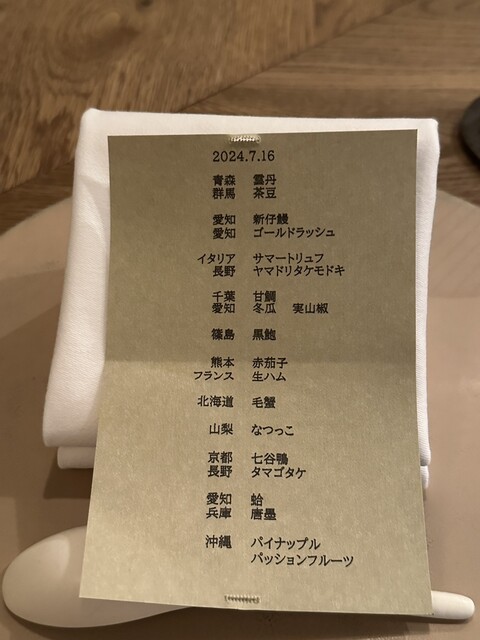 2024.7.16
青森 雲丹
群馬 茶豆
愛知 新仔鰻
愛知 ゴールドラッシュ
イタリア サマートリュフ
長野 ヤマドリタケモドキ
千葉 甘鯛
愛知 冬瓜 実山椒
篠島 黒鮑
熊本 赤茄子
フランス 生ハム
北海道 毛蟹
山梨 なつっこ
京都 七谷鴨
長野 タマゴタケ
愛知 蛤
兵庫 唐墨
沖縄 パイナップル
パッションフルーツ